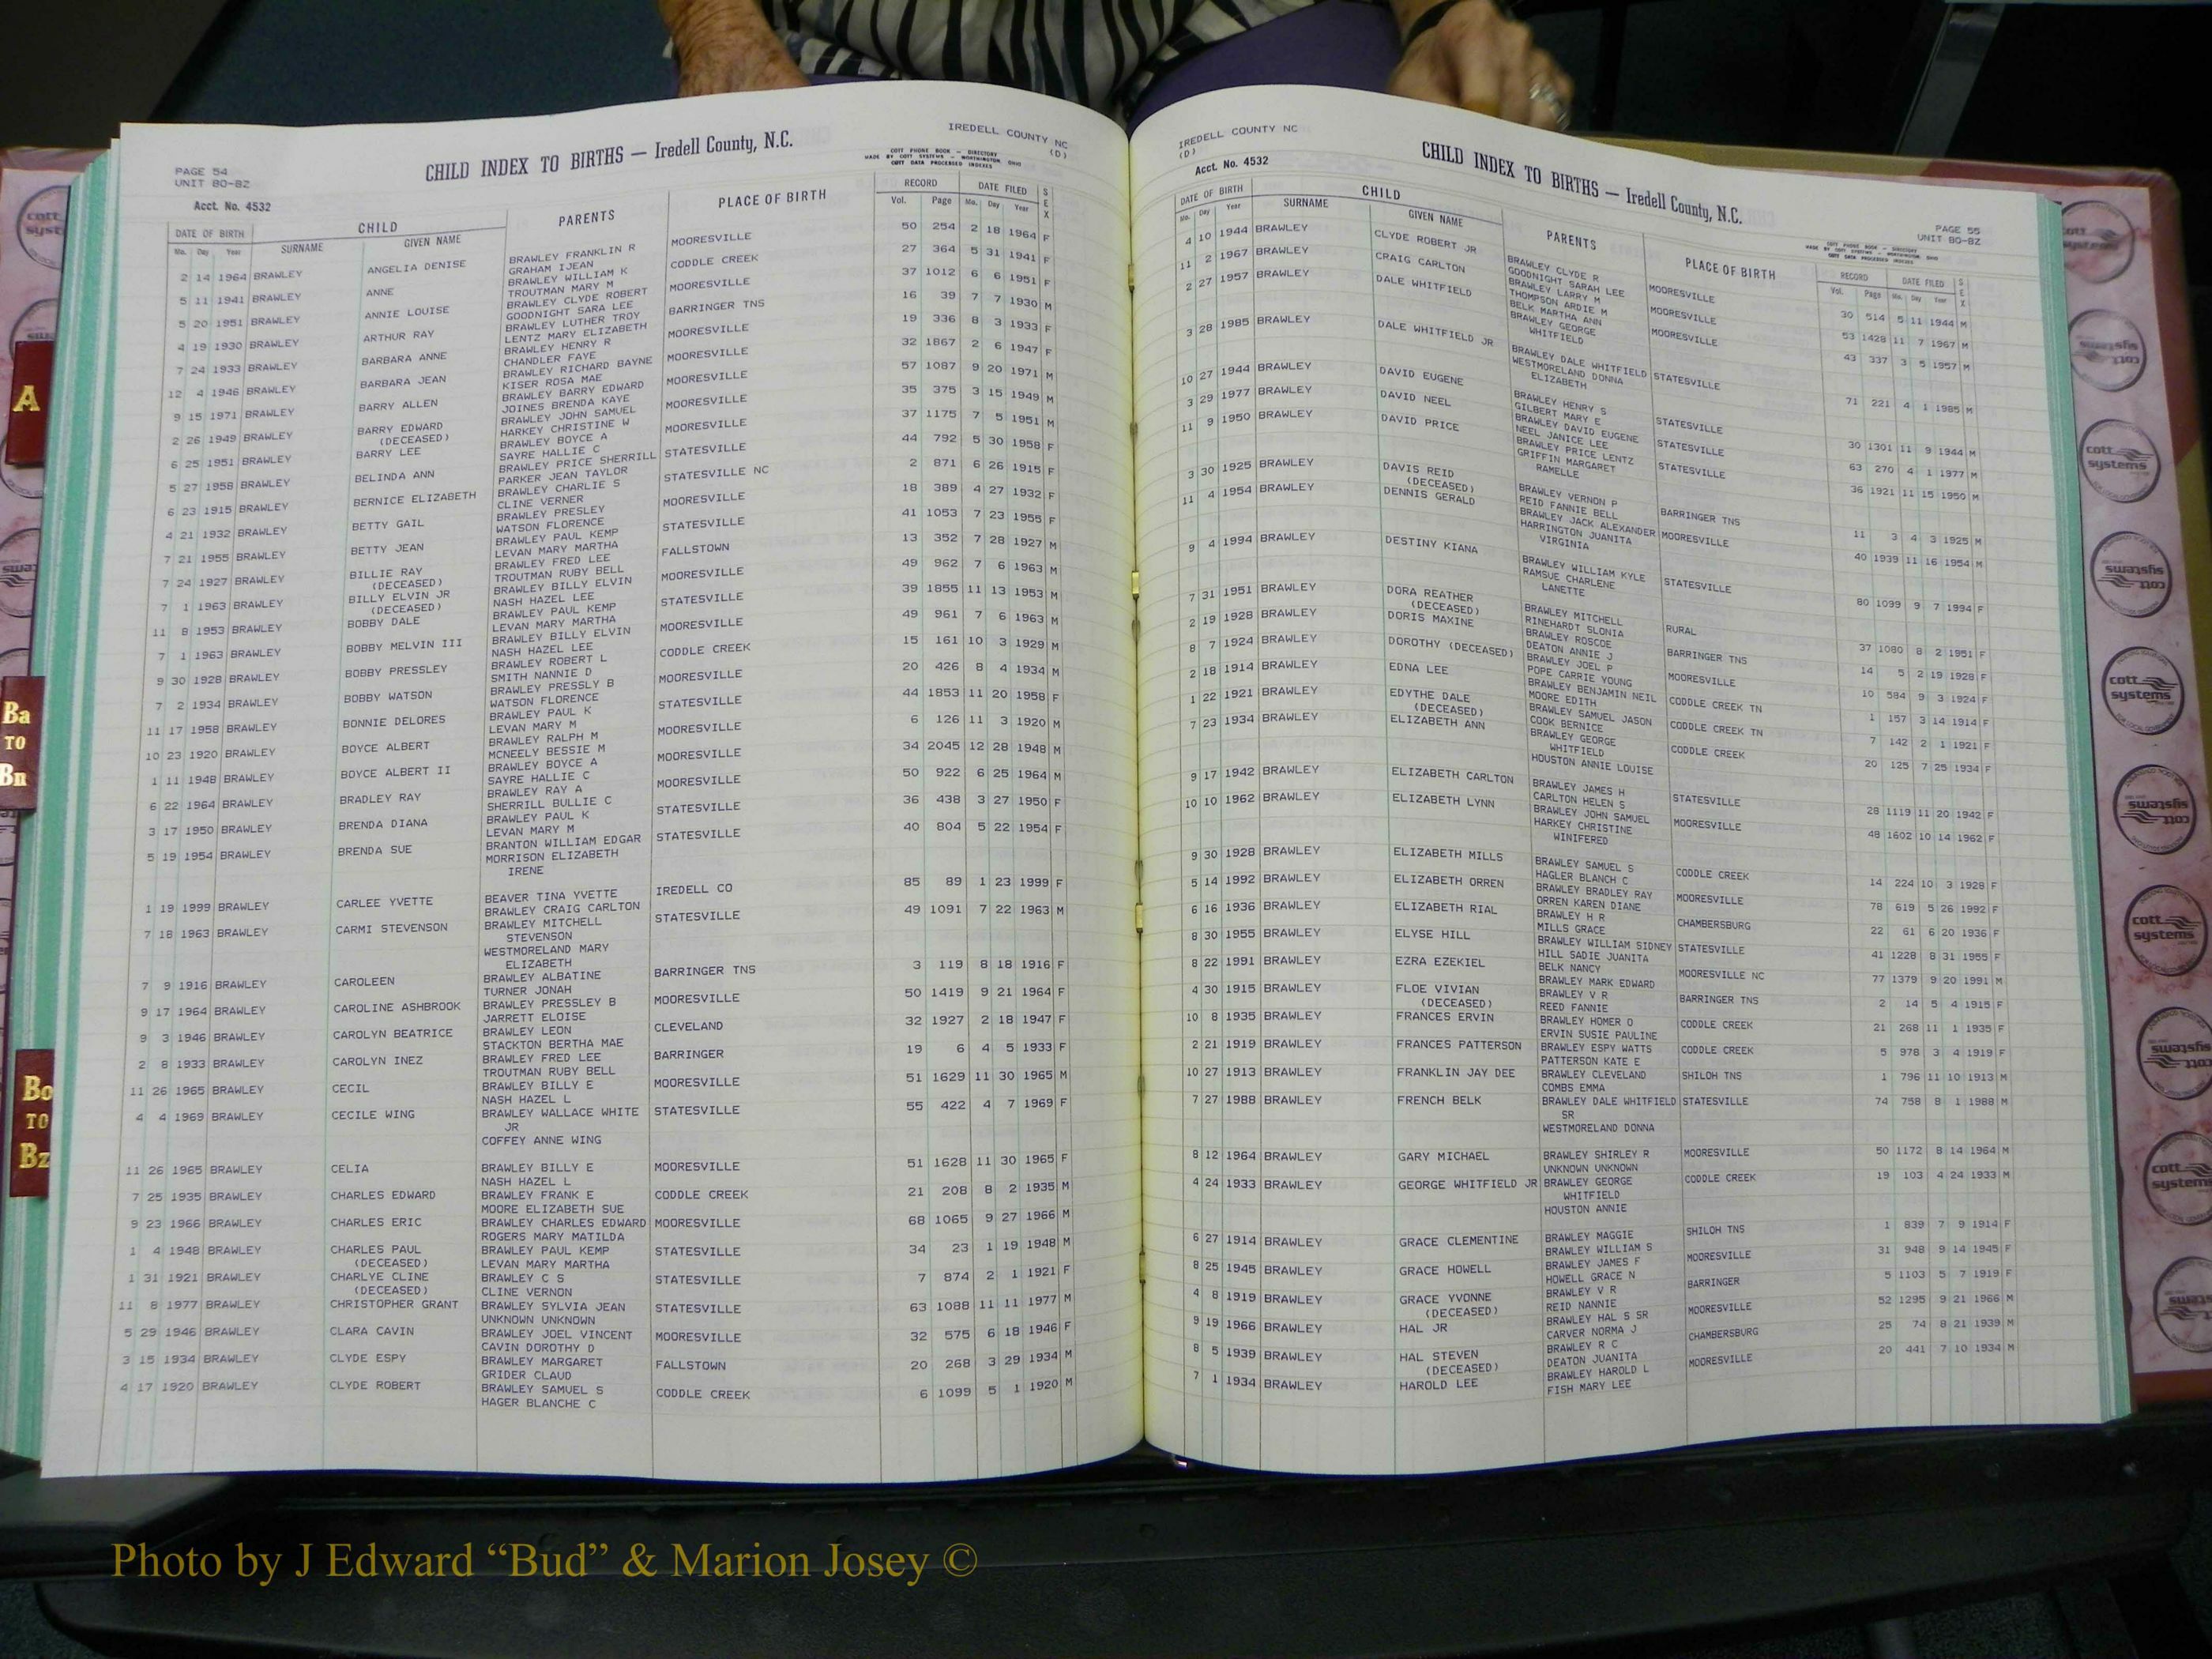 IREDELL COUNTY NC
(D)
PAGE 54
UNIT BO-BZ
CHILD INDEX TO BIRTHS — Iredell County, N.C.
COTT PHONE BOOK — DIRECTORY
MADE BY COTT SYSTEMS — WORTHINGTON, OHIO
COTT DATA PROCESSED INDEXES
Acct. No. 4532
DATE OF BIRTH CHILD PARENTS PLACE OF BIRTH RECORD DATE FILED SEX
Mo. Day Year SURNAME GIVEN NAME Vol. Page Mo. Day Year
2 14 1964 BRAWLEY ANGELIA DENISE BRAWLEY FRANKLIN R MOORESVILLE 50 254 2 18 1964 F
GRAHAM IJEAN
5 11 1941 BRAWLEY ANNE BRAWLEY WILLIAM K CODDLE CREEK 27 364 5 31 1941 F
TROUTMAN MARY M
5 20 1951 BRAWLEY ANNIE LOUISE BRAWLEY CLYDE ROBERT MOORESVILLE 37 1012 6 6 1951 F
GOODNIGHT SARA LEE
4 19 1930 BRAWLEY ARTHUR RAY BRAWLEY LUTHER TROY BARRINGER TNS 16 39 7 7 1930 M
LENTZ MARY ELIZABETH
7 24 1933 BRAWLEY BARBARA ANNE BRAWLEY HENRY R MOORESVILLE 19 336 8 3 1933 F
CHANDLER FAYE
12 4 1946 BRAWLEY BARBARA JEAN BRAWLEY RICHARD BAYNE MOORESVILLE 32 1867 2 6 1947 F
KISER ROSA MAE
9 15 1971 BRAWLEY BARRY ALLEN BRAWLEY BARRY EDWARD MOORESVILLE 57 1087 9 20 1971 M
JOINES BRENDA KAYE
2 26 1949 BRAWLEY BARRY EDWARD BRAWLEY JOHN SAMUEL MOORESVILLE 35 375 3 15 1949 M
(DECEASED) HARKEY CHRISTINE W
6 25 1951 BRAWLEY BARRY LEE BRAWLEY BOYCE A MOORESVILLE 37 1175 7 5 1951 M
SAYRE HALLIE C
5 27 1958 BRAWLEY BELINDA ANN BRAWLEY PRICE SHERRILL STATESVILLE 44 792 5 30 1958 F
PARKER JEAN TAYLOR
6 23 1915 BRAWLEY BERNICE ELIZABETH BRAWLEY CHARLIE S STATESVILLE NC 2 871 6 26 1915 F
CLINE VERNER
4 21 1932 BRAWLEY BETTY GAIL BRAWLEY PRESLEY MOORESVILLE 18 389 4 27 1932 F
WATSON FLORENCE
7 21 1955 BRAWLEY BETTY JEAN BRAWLEY PAUL KEMP STATESVILLE 41 1053 7 23 1955 F
LEVAN MARY MARTHA
7 24 1927 BRAWLEY BILLIE RAY BRAWLEY FRED LEE FALLSTOWN 13 352 7 28 1927 M
(DECEASED) TROUTMAN RUBY BELL
7 1 1963 BRAWLEY BILLY ELVIN JR BRAWLEY BILLY ELVIN MOORESVILLE 49 962 7 6 1963 M
(DECEASED) NASH HAZEL LEE
11 8 1953 BRAWLEY BOBBY DALE BRAWLEY PAUL KEMP STATESVILLE 39 1855 11 13 1953 M
LEVAN MARY MARTHA
7 1 1963 BRAWLEY BOBBY MELVIN III BRAWLEY BILLY ELVIN MOORESVILLE 49 961 7 6 1963 M
NASH HAZEL LEE
9 30 1928 BRAWLEY BOBBY PRESSLEY BRAWLEY ROBERT L CODDLE CREEK 15 161 10 3 1929 M
SMITH NANNIE D
7 2 1934 BRAWLEY BOBBY WATSON BRAWLEY PRESSLY B MOORESVILLE 20 426 8 4 1934 M
WATSON FLORENCE
11 17 1958 BRAWLEY BONNIE DELORES BRAWLEY PAUL K STATESVILLE 44 1853 11 20 1958 F
LEVAN MARY M
10 23 1920 BRAWLEY BOYCE ALBERT BRAWLEY RALPH M MOORESVILLE 6 126 11 3 1920 M
MCNEELY BESSIE M
1 11 1948 BRAWLEY BOYCE ALBERT II BRAWLEY BOYCE A MOORESVILLE 34 2045 12 28 1948 M
SAYRE HALLIE C
6 22 1964 BRAWLEY BRADLEY RAY BRAWLEY RAY A MOORESVILLE 50 922 6 25 1964 M
SHERRILL BULLIE C
3 17 1950 BRAWLEY BRENDA DIANA BRAWLEY PAUL K STATESVILLE 36 438 3 27 1950 F
LEVAN MARY M
5 19 1954 BRAWLEY BRENDA SUE BRANTON WILLIAM EDGAR STATESVILLE 40 804 5 22 1954 F
MORRISON ELIZABETH
IRENE
1 19 1999 BRAWLEY CARLEE YVETTE BEAVER TINA YVETTE IREDELL CO 85 89 1 23 1999 F
BRAWLEY CRAIG CARLTON
7 18 1963 BRAWLEY CARMI STEVENSON BRAWLEY MITCHELL STATESVILLE 49 1091 7 22 1963 M
STEVENSON
WESTMORELAND MARY
ELIZABETH
7 9 1916 BRAWLEY CAROLEEN BRAWLEY ALBATINE BARRINGER TNS 3 119 8 18 1916 F
TURNER JONAH
9 17 1964 BRAWLEY CAROLINE ASHBROOK BRAWLEY PRESSLEY B MOORESVILLE 50 1419 9 21 1964 F
JARRETT ELOISE
9 3 1946 BRAWLEY CAROLYN BEATRICE BRAWLEY LEON CLEVELAND 32 1927 2 18 1947 F
STACKTON BERTHA MAE
2 8 1933 BRAWLEY CAROLYN INEZ BRAWLEY FRED LEE BARRINGER 19 6 4 5 1933 F
TROUTMAN RUBY BELL
11 26 1965 BRAWLEY CECIL BRAWLEY BILLY E MOORESVILLE 51 1629 11 30 1965 M
NASH HAZEL L
4 4 1969 BRAWLEY CECILE WING BRAWLEY WALLACE WHITE STATESVILLE 55 422 4 7 1969 F
JR
COFFEY ANNE WING
11 26 1965 BRAWLEY CELIA BRAWLEY BILLY E MOORESVILLE 51 1628 11 30 1965 F
NASH HAZEL L
7 25 1935 BRAWLEY CHARLES EDWARD BRAWLEY FRANK E CODDLE CREEK 21 208 8 2 1935 M
MOORE ELIZABETH SUE
9 23 1966 BRAWLEY CHARLES ERIC BRAWLEY CHARLES EDWARD MOORESVILLE 68 1065 9 27 1966 M
ROGERS MARY MATILDA
1 4 1948 BRAWLEY CHARLES PAUL BRAWLEY PAUL KEMP STATESVILLE 34 23 1 19 1948 M
(DECEASED) LEVAN MARY MARTHA
1 31 1921 BRAWLEY CHARLYE CLINE BRAWLEY C S STATESVILLE 7 874 2 1 1921 F
(DECEASED) CLINE VERNON
11 8 1977 BRAWLEY CHRISTOPHER GRANT BRAWLEY SYLVIA JEAN STATESVILLE 63 1088 11 11 1977 M
UNKNOWN UNKNOWN
5 29 1946 BRAWLEY CLARA CAVIN BRAWLEY JOEL VINCENT MOORESVILLE 32 575 6 18 1946 F
CAVIN DOROTHY D
3 15 1934 BRAWLEY CLYDE ESPY BRAWLEY MARGARET FALLSTOWN 20 268 3 29 1934 M
GRIDER CLAUD
4 17 1920 BRAWLEY CLYDE ROBERT BRAWLEY SAMUEL S CODDLE CREEK 6 1099 5 1 1920 M
HAGER BLANCHE C
IREDELL COUNTY NC
(D)
Acct. No. 4532
CHILD INDEX TO BIRTHS — Iredell County, N.C.
PAGE 55
UNIT BO-BZ
COTT PHONE BOOK — DIRECTORY
MADE BY COTT SYSTEMS — WORTHINGTON, OHIO
COTT DATA PROCESSED INDEXES
DATE OF BIRTH CHILD PARENTS PLACE OF BIRTH RECORD DATE FILED SEX
Mo. Day Year SURNAME GIVEN NAME Vol. Page Mo. Day Year
4 10 1944 BRAWLEY CLYDE ROBERT JR BRAWLEY CLYDE R MOORESVILLE 30 514 5 11 1944 M
GOODNIGHT SARAH LEE
11 2 1967 BRAWLEY CRAIG CARLTON BRAWLEY LARRY M MOORESVILLE 53 1428 11 7 1967 M
THOMPSON ARDIE M
2 27 1957 BRAWLEY DALE WHITFIELD BELK MARTHA ANN MOORESVILLE 43 337 3 5 1957 M
BRAWLEY GEORGE
WHITFIELD
3 28 1985 BRAWLEY DALE WHITFIELD JR BRAWLEY DALE WHITFIELD STATESVILLE 71 221 4 1 1985 M
WESTMORELAND DONNA
ELIZABETH
10 27 1944 BRAWLEY DAVID EUGENE BRAWLEY HENRY S STATESVILLE 30 1301 11 9 1944 M
GILBERT MARY E
3 29 1977 BRAWLEY DAVID NEEL BRAWLEY DAVID EUGENE STATESVILLE 63 270 4 1 1977 M
NEEL JANICE LEE
11 9 1950 BRAWLEY DAVID PRICE BRAWLEY PRICE LENTZ STATESVILLE 36 1921 11 15 1950 M
GRIFFIN MARGARET
RAMELLE
3 30 1925 BRAWLEY DAVIS REID BRAWLEY VERNON P BARRINGER TNS 11 3 4 3 1925 M
(DECEASED) REID FANNIE BELL
11 4 1954 BRAWLEY DENNIS GERALD BRAWLEY JACK ALEXANDER MOORESVILLE 40 1939 11 16 1954 M
HARRINGTON JUANITA
VIRGINIA
9 4 1994 BRAWLEY DESTINY KIANA BRAWLEY WILLIAM KYLE STATESVILLE 80 1099 9 7 1994 F
RAMSUE CHARLENE
LANETTE
7 31 1951 BRAWLEY DORA REATHER BRAWLEY MITCHELL RURAL 37 1080 8 2 1951 F
(DECEASED) RINEHARDT SLONIA
2 19 1928 BRAWLEY DORIS MAXINE BRAWLEY ROSCOE BARRINGER TNS 14 5 2 19 1928 F
DEATON ANNIE J
8 7 1924 BRAWLEY DOROTHY (DECEASED) BRAWLEY JOEL P MOORESVILLE 10 584 9 3 1924 F
POPE CARRIE YOUNG
2 18 1914 BRAWLEY EDNA LEE BRAWLEY BENJAMIN NEIL CODDLE CREEK TN 1 157 3 14 1914 F
MOORE EDITH
1 22 1921 BRAWLEY EDYTHE DALE BRAWLEY SAMUEL JASON CODDLE CREEK TN 7 142 2 1 1921 F
(DECEASED) COOK BERNICE
7 23 1934 BRAWLEY ELIZABETH ANN BRAWLEY GEORGE CODDLE CREEK 20 125 7 25 1934 F
WHITFIELD
HOUSTON ANNIE LOUISE
9 17 1942 BRAWLEY ELIZABETH CARLTON BRAWLEY JAMES H STATESVILLE 28 1119 11 20 1942 F
CARLTON HELEN S
10 10 1962 BRAWLEY ELIZABETH LYNN BRAWLEY JOHN SAMUEL MOORESVILLE 48 1602 10 14 1962 F
HARKEY CHRISTINE
WINIFERED
9 30 1928 BRAWLEY ELIZABETH MILLS BRAWLEY SAMUEL S CODDLE CREEK 14 224 10 3 1928 F
HAGLER BLANCH C
5 14 1992 BRAWLEY ELIZABETH ORREN BRAWLEY BRADLEY RAY MOORESVILLE 78 619 5 26 1992 F
ORREN KAREN DIANE
6 16 1936 BRAWLEY ELIZABETH RIAL BRAWLEY H R CHAMBERSBURG 22 61 6 20 1936 F
MILLS GRACE
8 30 1955 BRAWLEY ELYSE HILL BRAWLEY WILLIAM SIDNEY STATESVILLE 41 1228 8 31 1955 F
HILL SADIE JUANITA
8 22 1991 BRAWLEY EZRA EZEKIEL BELK NANCY MOORESVILLE NC 77 1379 9 20 1991 M
BRAWLEY MARK EDWARD
4 30 1915 BRAWLEY FLOE VIVIAN BRAWLEY V R BARRINGER TNS 2 14 5 4 1915 F
(DECEASED) REED FANNIE
10 8 1935 BRAWLEY FRANCES ERVIN BRAWLEY HOMER O CODDLE CREEK 21 268 11 1 1935 F
ERVIN SUSIE PAULINE
2 21 1919 BRAWLEY FRANCES PATTERSON BRAWLEY ESPY WATTS CODDLE CREEK 5 978 3 4 1919 F
PATTERSON KATE E
10 27 1913 BRAWLEY FRANKLIN JAY DEE BRAWLEY CLEVELAND SHILOH TNS 1 796 11 10 1913 M
COMBS EMMA
7 27 1988 BRAWLEY FRENCH BELK BRAWLEY DALE WHITFIELD STATESVILLE 74 758 8 1 1988 M
SR
WESTMORELAND DONNA
8 12 1964 BRAWLEY GARY MICHAEL BRAWLEY SHIRLEY R MOORESVILLE 50 1172 8 14 1964 M
UNKNOWN UNKNOWN
4 24 1933 BRAWLEY GEORGE WHITFIELD JR BRAWLEY GEORGE CODDLE CREEK 19 103 4 24 1933 M
WHITFIELD
HOUSTON ANNIE
6 27 1914 BRAWLEY GRACE CLEMENTINE BRAWLEY MAGGIE SHILOH TNS 1 839 7 9 1914 F
BRAWLEY WILLIAM S
8 25 1945 BRAWLEY GRACE HOWELL BRAWLEY JAMES F MOORESVILLE 31 948 9 14 1945 F
HOWELL GRACE N
4 8 1919 BRAWLEY GRACE YVONNE BRAWLEY V R BARRINGER 5 1103 5 7 1919 F
(DECEASED) REID NANNIE
9 19 1966 BRAWLEY HAL JR BRAWLEY HAL S SR MOORESVILLE 52 1295 9 21 1966 M
CARVER NORMA J
8 5 1939 BRAWLEY HAL STEVEN BRAWLEY R C CHAMBERSBURG 25 74 8 21 1939 M
(DECEASED) DEATON JUANITA
7 1 1934 BRAWLEY HAROLD LEE BRAWLEY HAROLD L MOORESVILLE 20 441 7 10 1934 M
FISH MARY LEE
A
Ba
TO
Bn
Bo
TO
Bz
cott
systems
Photo by J Edward “Bud” & Marion Josey ©